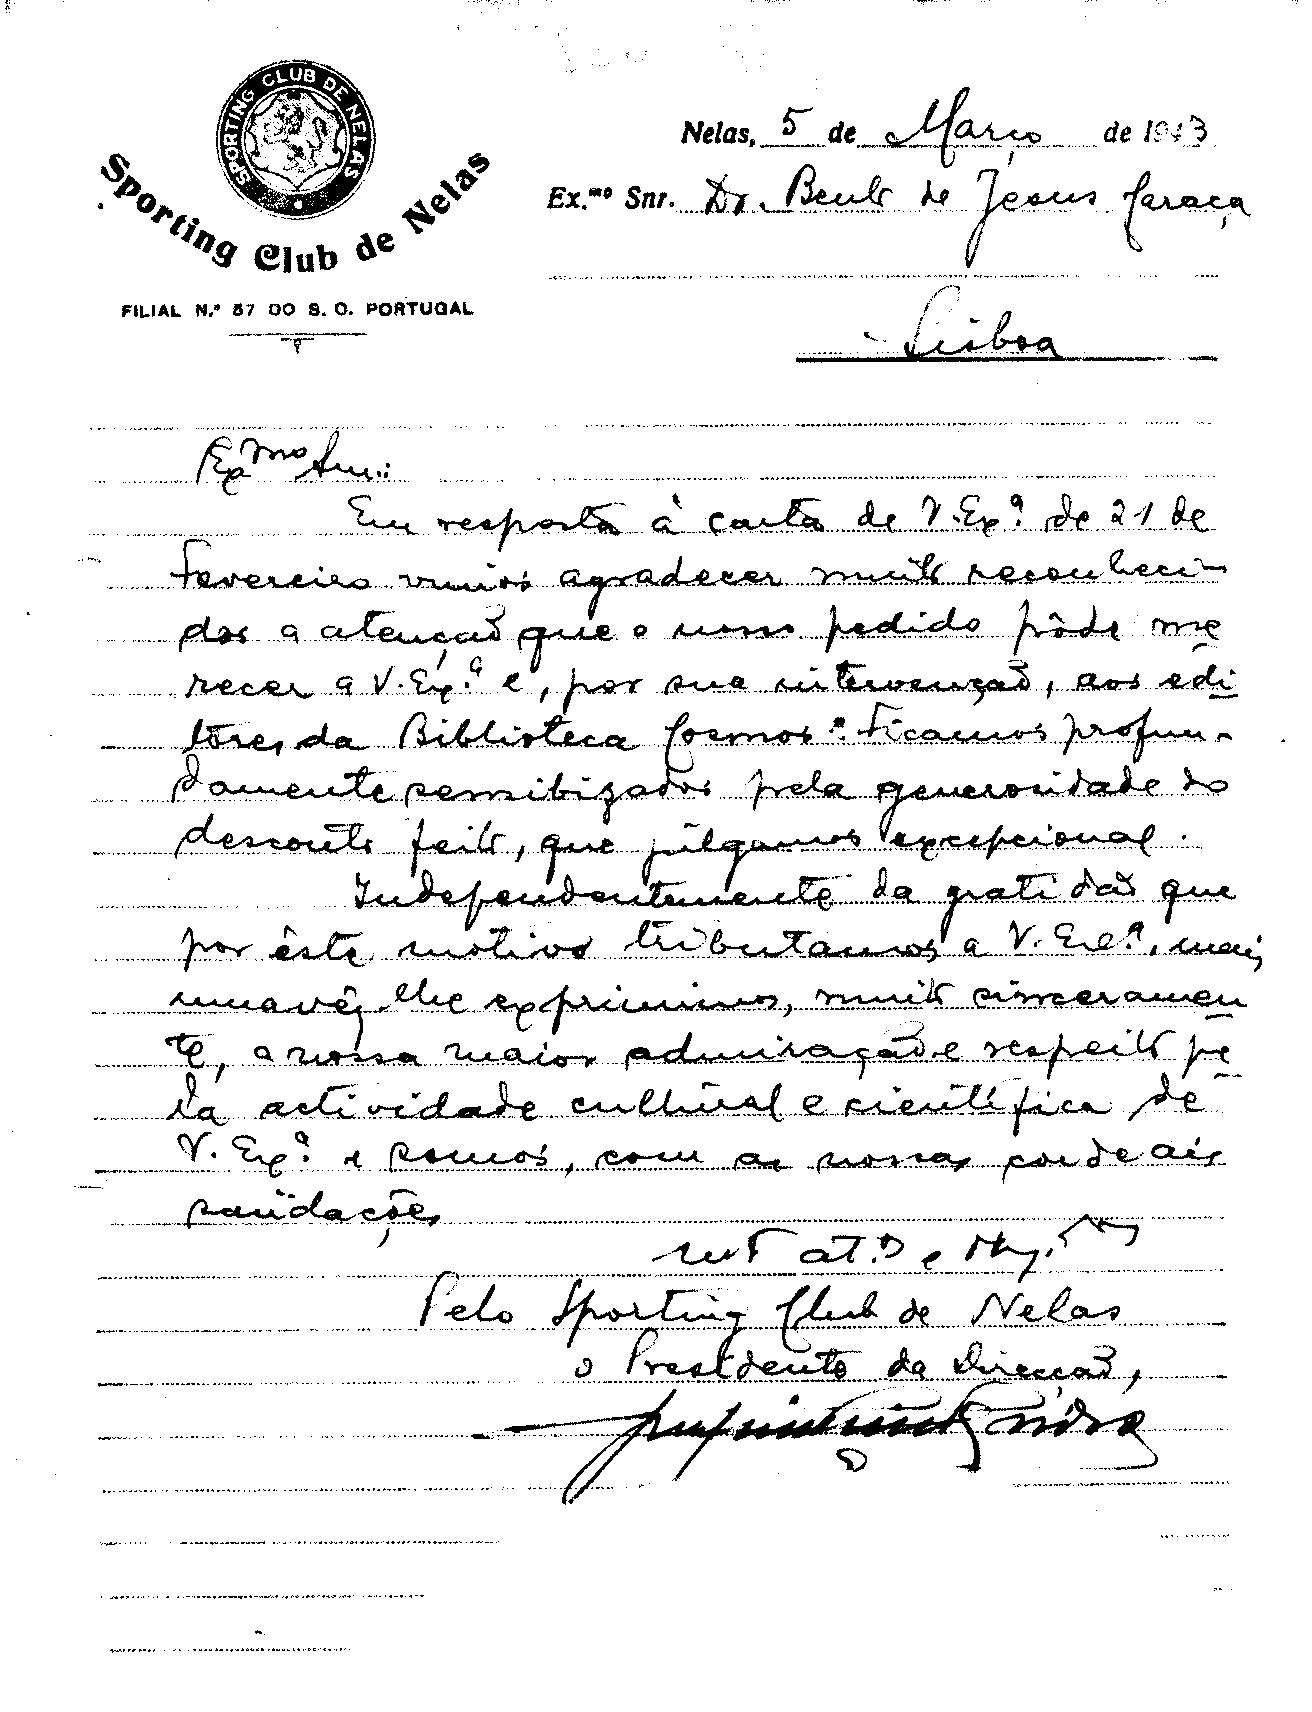 SPORTING CLUB DE NELAS
Sporting Club de Nelas
FILIAL N.º 57 DO S. C. PORTUGAL
Nelas, 5 de Março de 1943
Ex.mo Snr. Dr. Bento de Jesus Caraça
Lisboa
Exmo Snr.:
Em resposta à carta de V. Ex.ª de 21 de
Fevereiro vimos agradecer muito reconheci-
dos a atenção que o nosso pedido pôde me
recer a V. Ex.ª e, por sua intervenção, aos edi
tores da Biblioteca Cosmos". Ficamos profun-
damente sensibizados pela generosidade do
desconto feito, que julgamos excepcional.
Independentemente da gratidão que
por êste motivo tributamos a V. Ex.ª, mais
uma vez lhe exprimimos, muito sinceramen
te, a nossa maior admiração e respeito pe
la actividade cultural e científica de
V. Ex.ª e somos, com as nossas cordeais
saüdações
at.os e
Pelo Sporting Club de Nelas
o Presidente da Direcção,